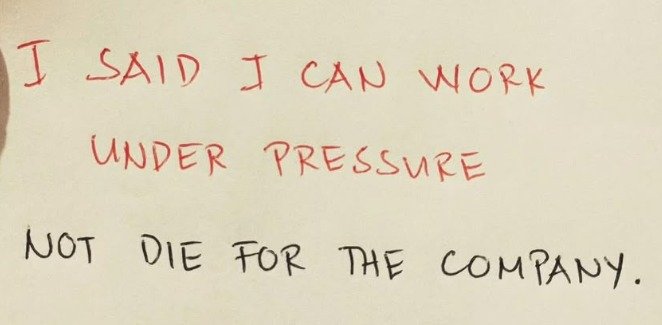 I SAID I CAN WORK
UNDER PRESSURE
NOT DIE FOR THE COMPANY.